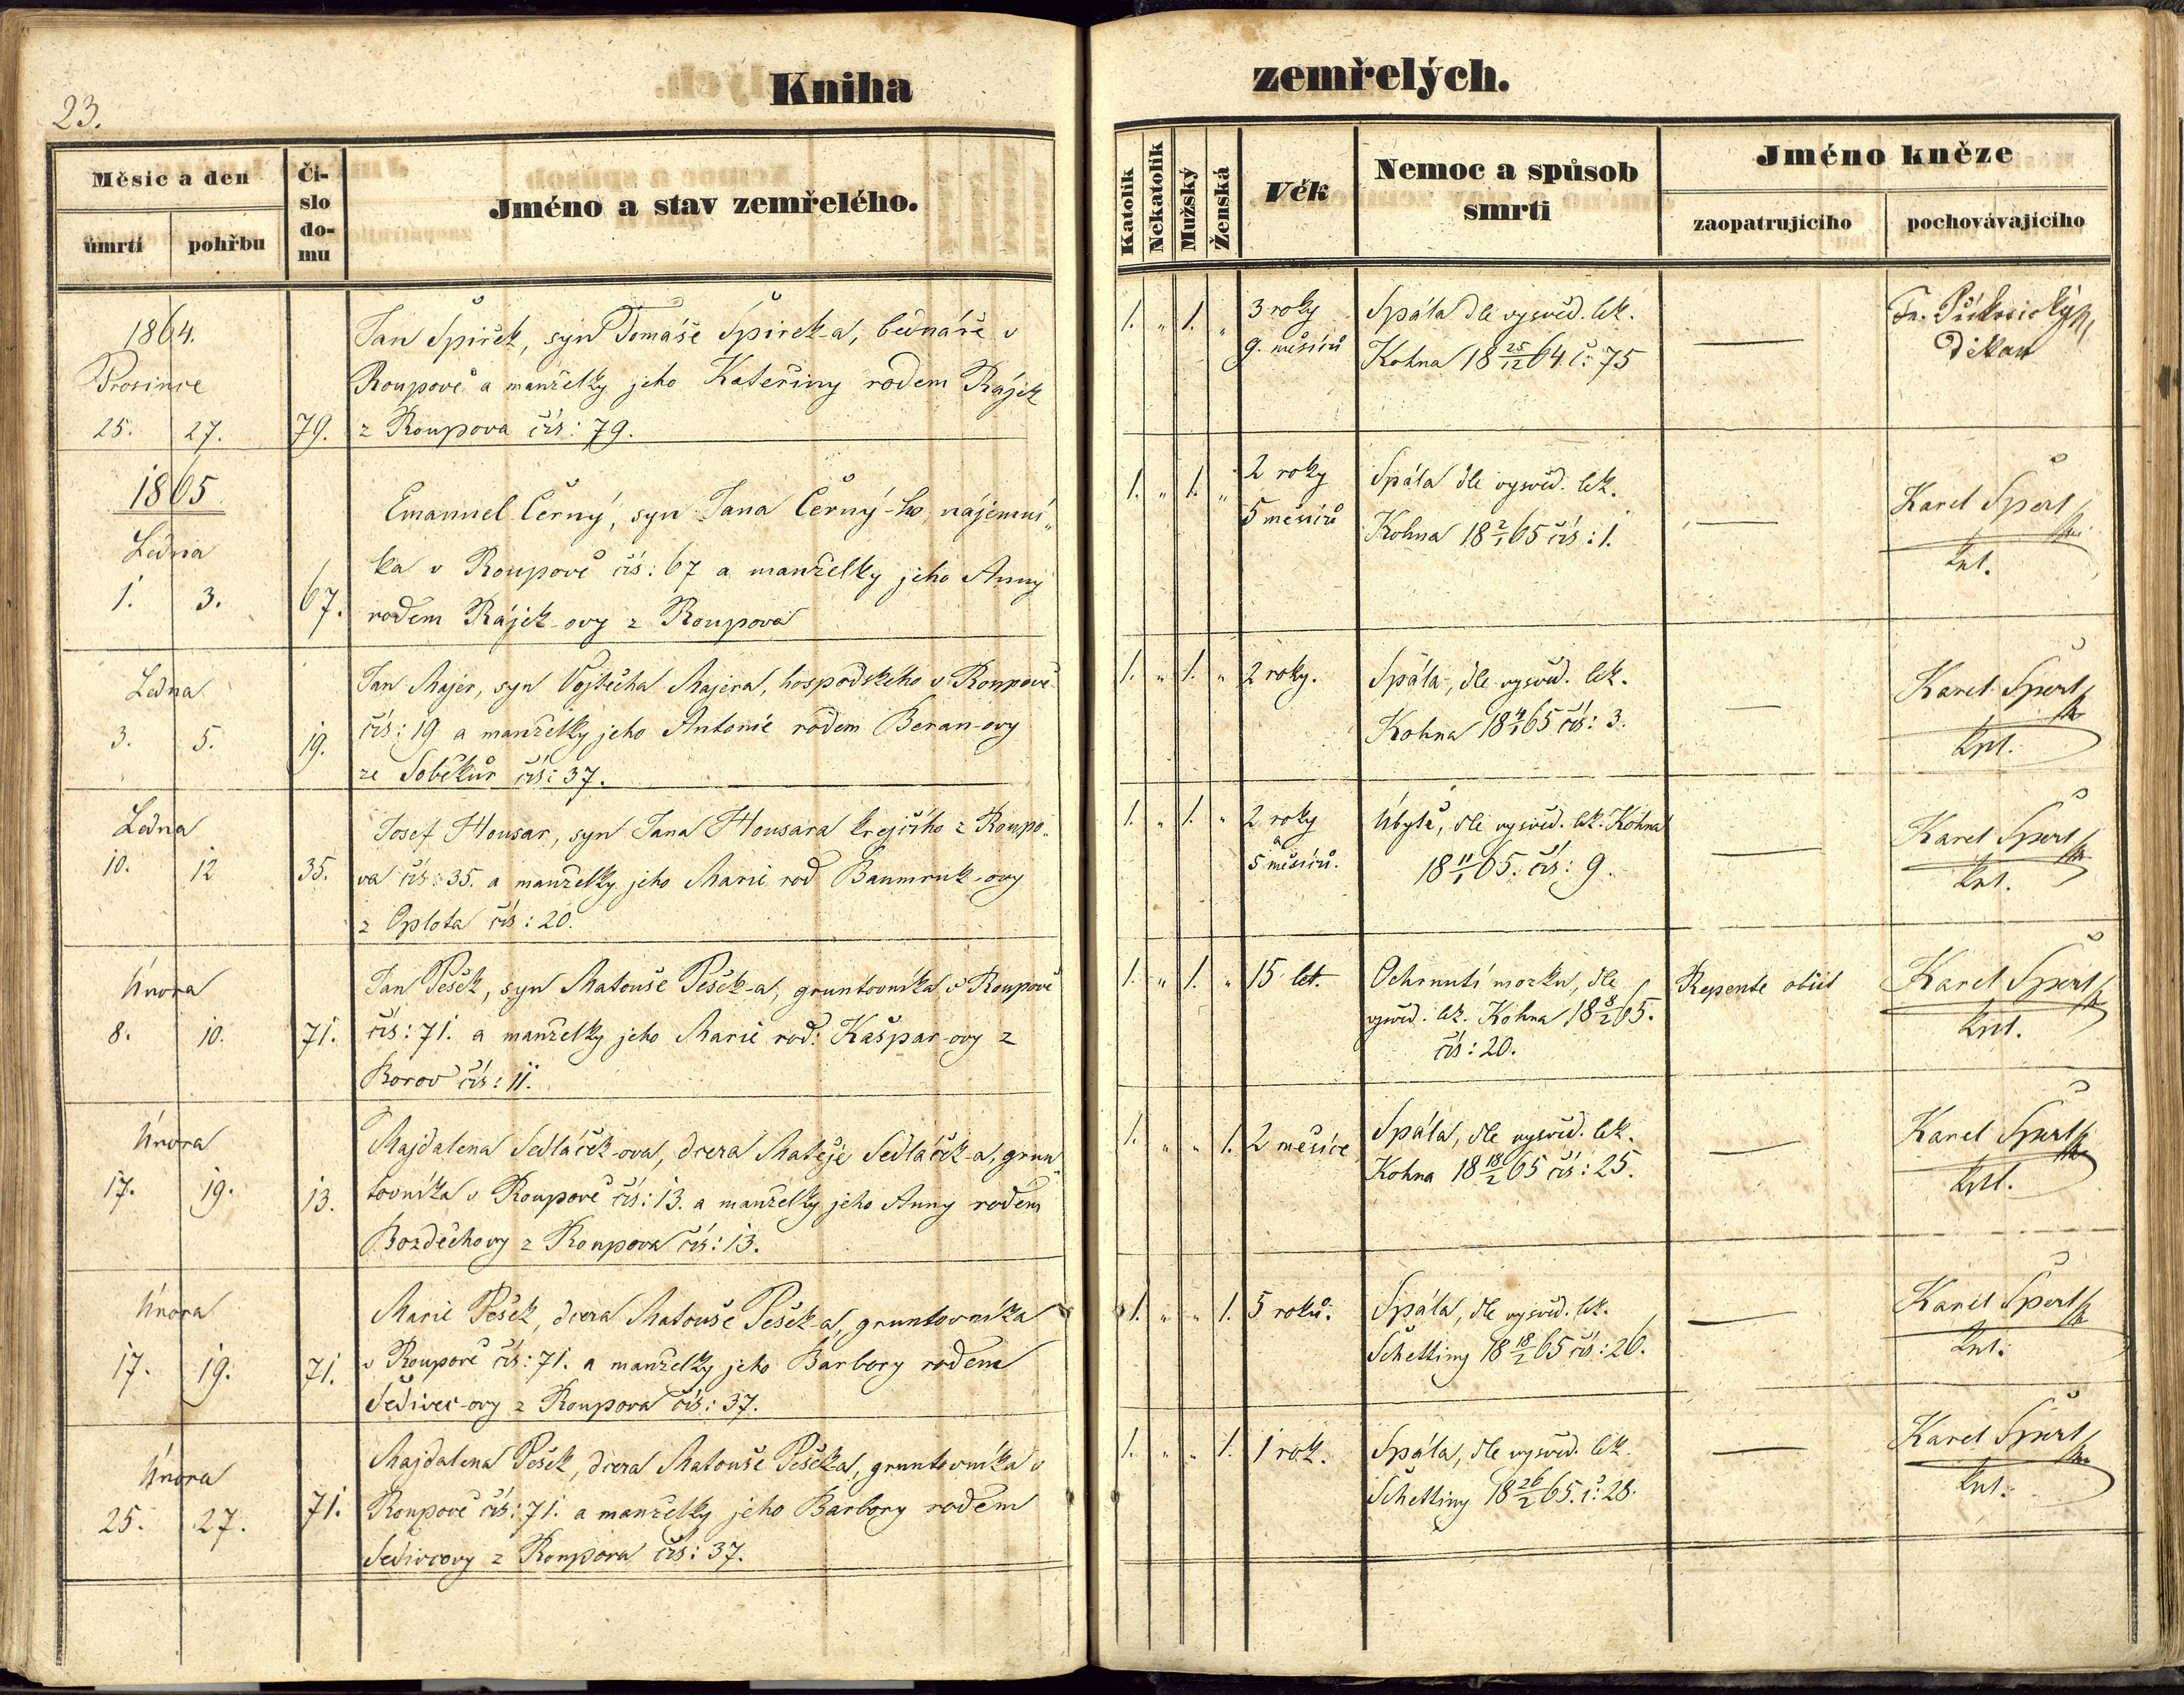 23.
Kniha zemřelých.
Měsíc a den
Čí-
slo
do-
mu
Jméno a stav zemřelého.
úmrtí
pohřbu
Katolík
Nekatolík
Mužský
Ženská
Věk
Nemoc a spůsob
smrti
Jméno kněze
zaopatrujícího
pochovávajícího
1864.
Prosince
25. 27. 79.
Jan Špirek, syn Tomáše Špirek-a, bednáře v
Roupově a manželky jeho Kateřiny rodem Rájek
z Roupova čís: 79.
1. „ 1. „
3 roky
9. měsíců
Spála dle vysvěd. lek.
Kohna 18 25/12 64 č: 75
—
Děkan
1865
Ledna
1. 3. 67.
Emanuel Černý, syn Jana Černý-ho, nájemní„
ka v Roupově čís: 67 a manželky jeho Anny
rodem Rájek-ovy z Roupova
1. „ 1. „
2 roky
5 měsíců
Spála dle vysvěd. lek.
Kohna 18 2/1 65 čís: 1.
—
Karel Špert
kpl.
Ledna
3. 5. 19.
Jan Majer, syn Vojtěcha Majera, hospodského v Roupově
čís: 19 a manželky jeho Antonie rodem Beran-ovy
ze Soběkur čís: 37.
1. „ 1. „ 2 roky.
Spála, dle vysvěd. lek.
Kohna 18 4/1 65 čís: 3.
—
Karel Špert
kpl.
Ledna
10. 12 35.
Josef Housar, syn Jana Housara krejčího z Roupo„
va čís: 35. a manželky jeho Marie rod Baumruk-ovy
z Oplota čís: 20.
1. „ 1. „
2 roky
a
5 měsíců.
Úbytě, dle vysvěd. lek. Kohna
18 11/1 65. čís: 9.
—
Karel Špert
kpl.
Února
8. 10. 71.
Jan Pešek, syn Matouše Pešek-a, gruntovníka v Roupově
čís: 71. a manželky jeho Marie rod: Kašpar-ovy z
Borov čís: 11.
1. „ 1. „ 15 let.
Ochrnutí mozku, dle
vysvěd. lek. Kohna 18 8/2 65.
čís: 20.
Repente obiit
Karel Špert
kpl.
Února
17. 19. 13.
Majdalena Sedláček-ova, dcera Matěje Sedláček-a, grun„
tovníka v Roupově čís: 13. a manželky jeho Anny rodem
Bozděchovy z Roupova čís: 13.
1. „ „ 1. 2 měsíce
Spála, dle vysvěd. lek.
Kohna 18 18/2 65 čís: 25.
—
Karel Špert
kpl.
Února
17. 19. 71.
Marie Pešek, dcera Matouše Pešek-a, gruntovníka
v Roupově čís: 71. a manželky jeho Barbory rodem
Šedivec-ovy z Roupova čís: 37.
1. „ „ 1. 5 roků.
Spála, dle vysvěd. lek.
Schelliny 18 18/2 65 čís: 26.
—
Karel Špert
kpl.
Února
25. 27. 71.
Majdalena Pešek, dcera Matouše Pešek-a, gruntovníka v
Roupově čís: 71. a manželky jeho Barbory rodem
Šedivcovy z Roupova čís: 37.
1. „ „ 1. 1 rok.
Spála, dle vysvěd. lek.
Schelliny 18 26/2 65. č: 28.
—
Karel Špert
kpl.